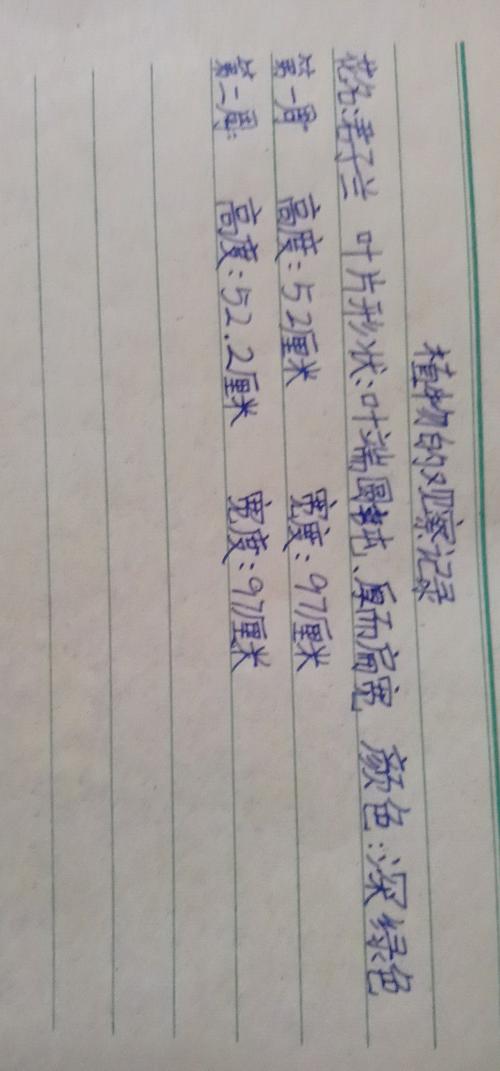 植物的观察记录
花名:君子兰 叶片形状:叶端圆钝、厚而扁宽 颜色:深绿色
第一周 高度:52厘米 宽度:97厘米
第二周: 高度:52.2厘米 宽度:97厘米